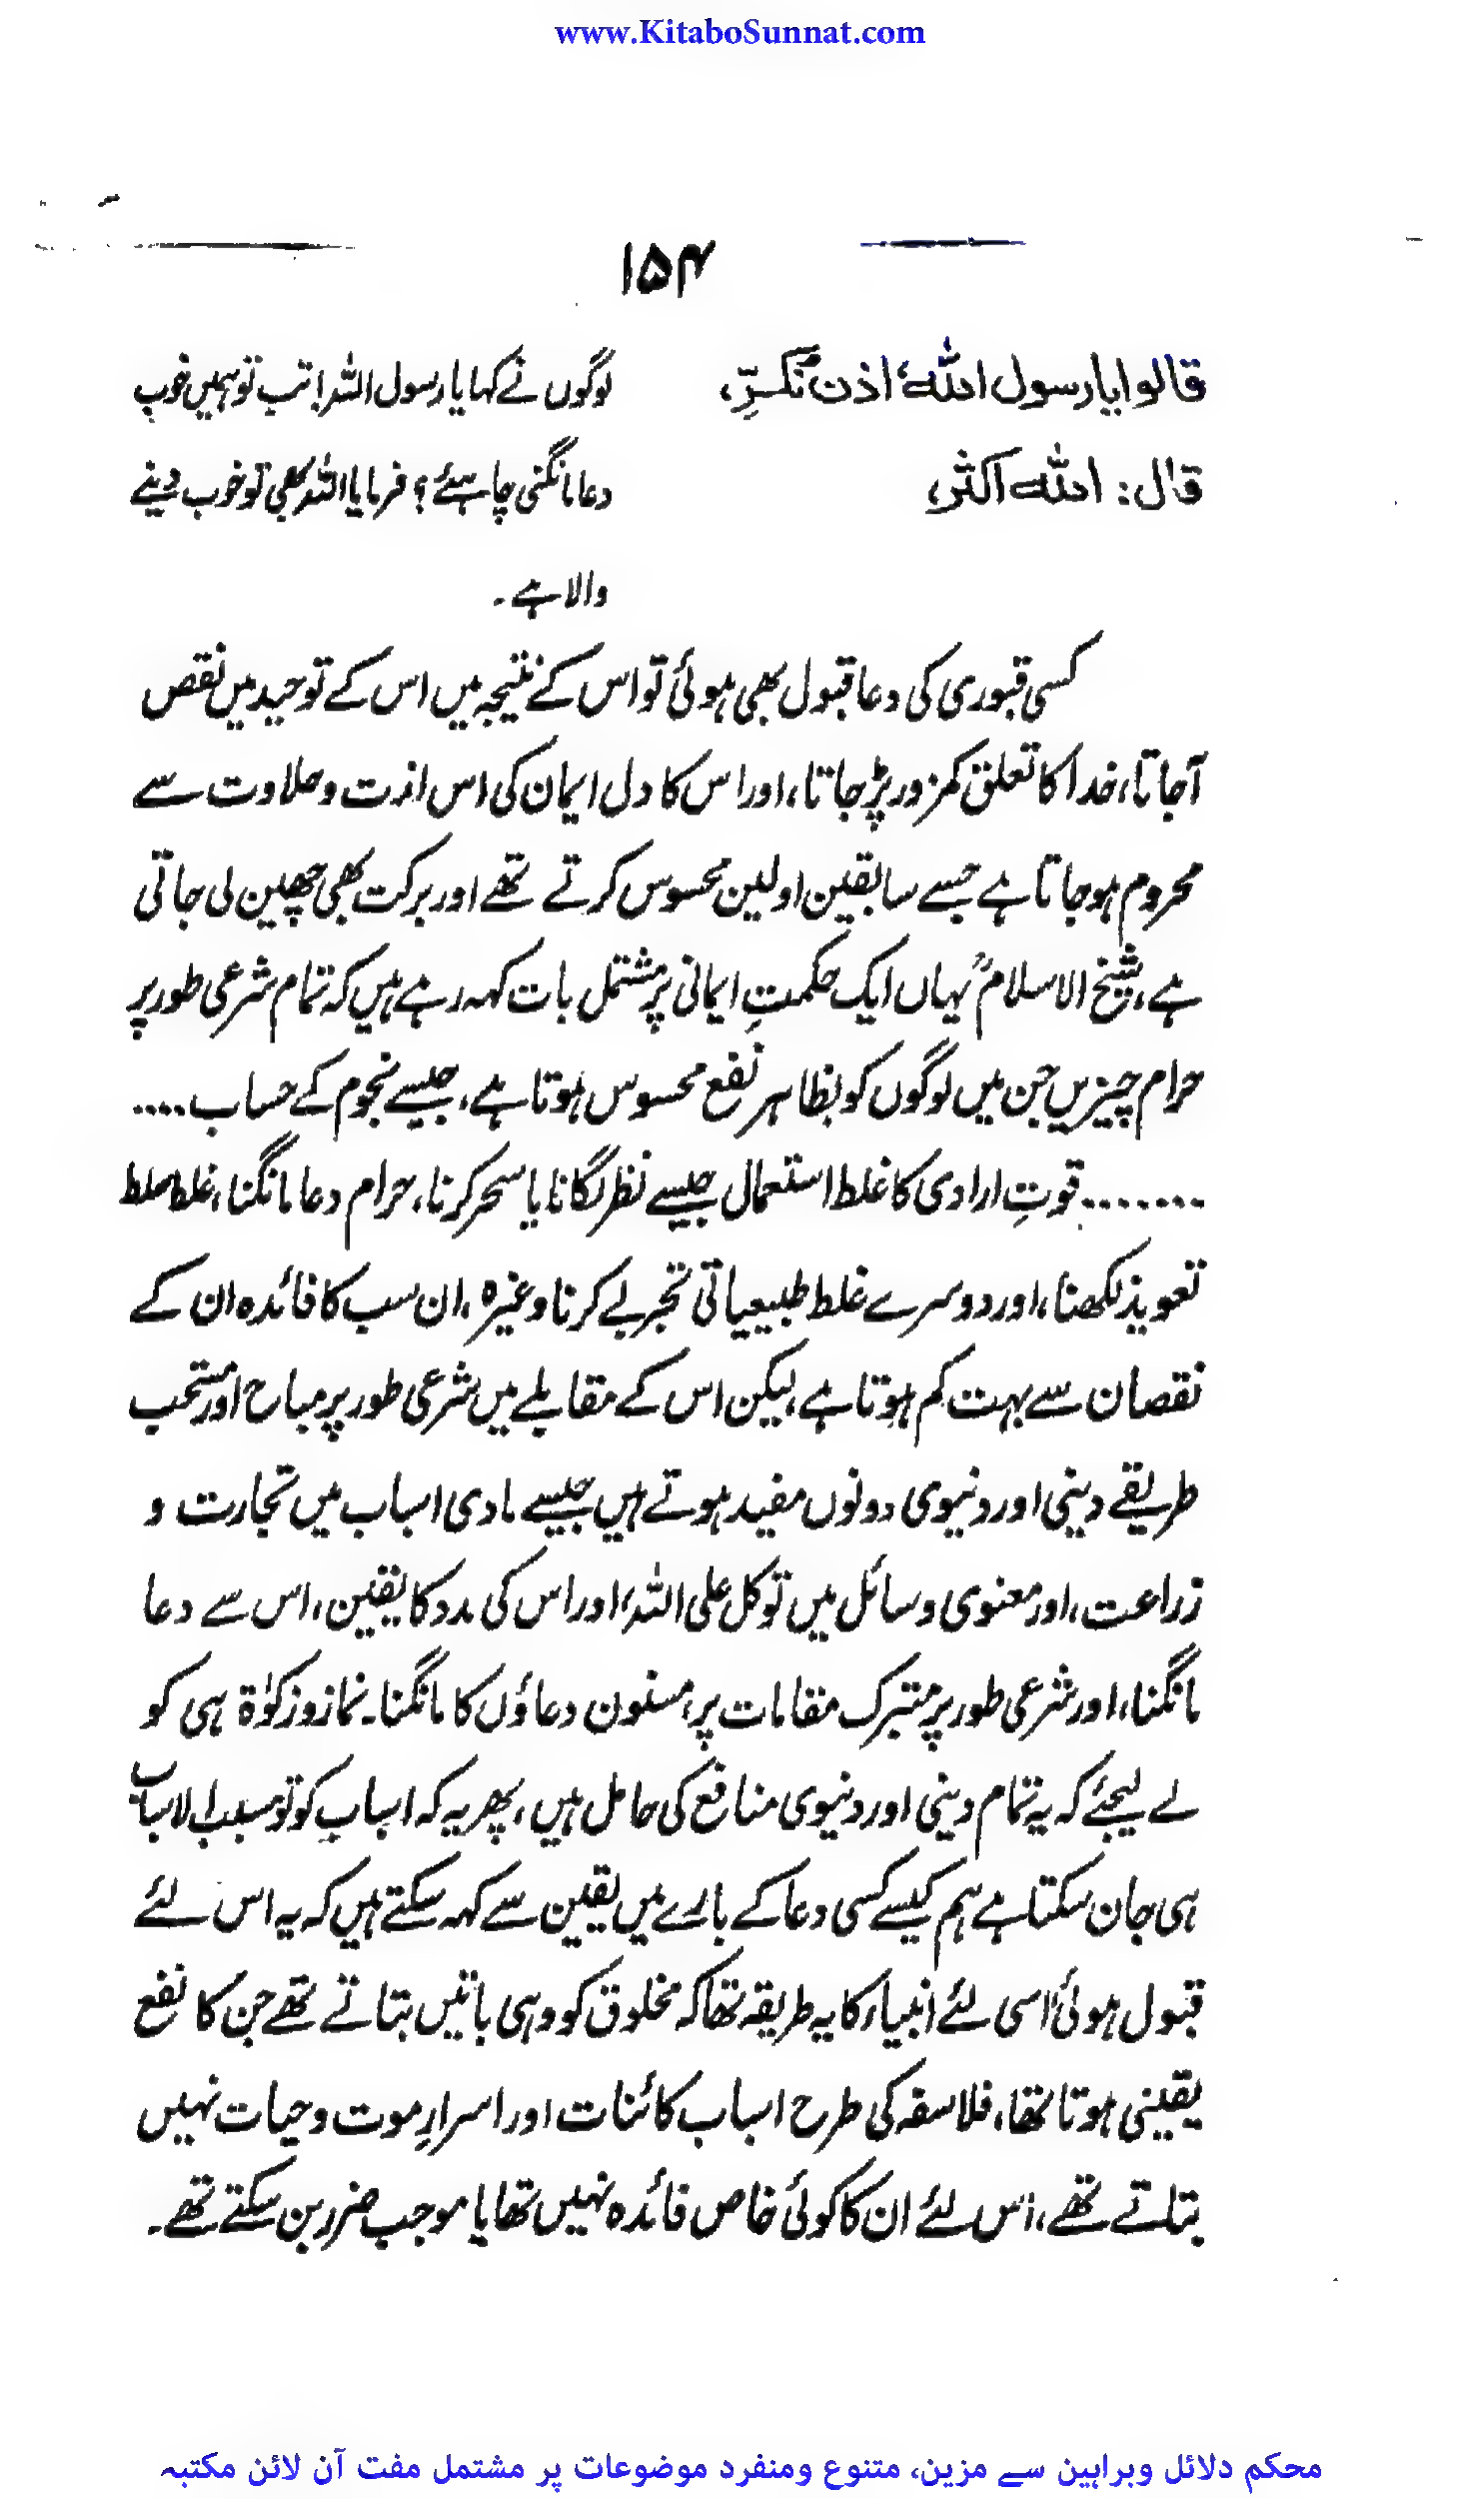 www.KitaboSunnat.com
۱۵۴
قالوا یا رسول اللہ، اذن نکثر، لوگوں نے کہا یا رسول اللہ! تب تو ہمیں خوب
قال: اللہ اکثر، دعا مانگنی چاہئے؟ فرمایا اللہ بھی تو خوب دینے
والا ہے۔
کسی قبوری کی دعا قبول بھی ہوئی تو اس کے نتیجہ میں اس کے توحید میں نقص
آجاتا، خدا کا تعلق کمزور پڑ جاتا، اور اس کا دل ایمان کی اس لذت و حلاوت سے
محروم ہو جاتا ہے جسے سابقین اولین محسوس کرتے تھے اور برکت بھی چھین لی جاتی
ہے، شیخ الاسلامؒ یہاں ایک حکمتِ ایمانی پر مشتمل بات کہہ رہے ہیں کہ تمام شرعی طور پر
حرام چیزیں جن میں لوگوں کو بظاہر نفع محسوس ہوتا ہے، جیسے نجوم کے حساب ....
....... قوتِ ارادی کا غلط استعمال جیسے نظر لگانا یا سحر کرنا، حرام دعا مانگنا، غلط سلط
تعویذ لکھنا، اور دوسرے غلط طبیعیاتی تجربے کرنا وغیرہ، ان سب کا فائدہ ان کے
نقصان سے بہت کم ہوتا ہے، لیکن اس کے مقابلے میں شرعی طور پر مباح اور مستحب
طریقے دینی اور دنیوی دونوں مفید ہوتے ہیں جیسے مادی اسباب میں تجارت و
زراعت، اور معنوی وسائل میں توکل علی اللہ، اور اس کی مدد کا یقین، اس سے دعا
مانگنا، اور شرعی طور پر متبرک مقامات پر، مسنون دعاؤں کا مانگنا۔ نماز و زکوٰۃ ہی کو
لے لیجئے کہ یہ تمام دینی اور دنیوی منافع کی حامل ہیں، پھر یہ کہ اسباب کو تو مسبب الاسباب
ہی جان سکتا ہے ہم کیسے کسی دعا کے بارے میں یقین سے کہہ سکتے ہیں کہ یہ اس لئے
قبول ہوئی، اسی لئے انبیاء کا یہ طریقہ تھا کہ مخلوق کو وہی باتیں بتاتے تھے جن کا نفع
یقینی ہوتا تھا، فلاسفہ کی طرح اسباب کائنات اور اسرارِ موت و حیات نہیں
بتلاتے تھے، اس لئے ان کا کوئی خاص فائدہ نہیں تھا یا موجب ضرر بن سکتے تھے۔
محکم دلائل وبراہین سے مزین، متنوع ومنفرد موضوعات پر مشتمل مفت آن لائن مکتبہ